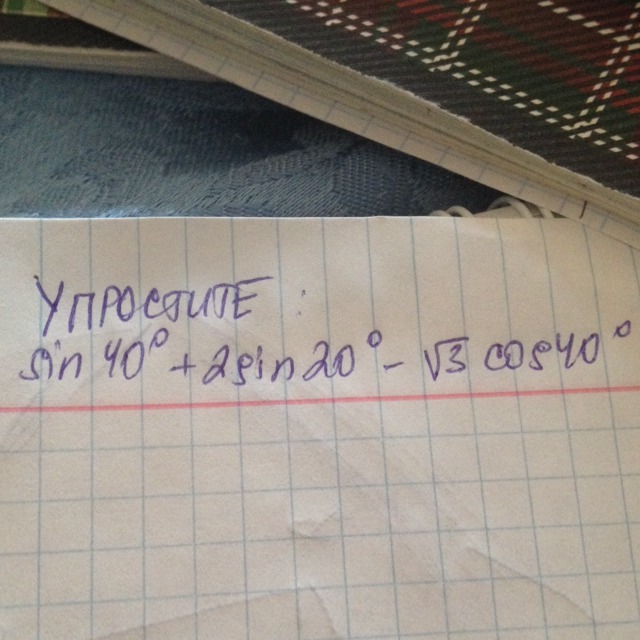 УПРОСТИТЕ :
sin 40° + 2sin 20° - √3 cos 40°